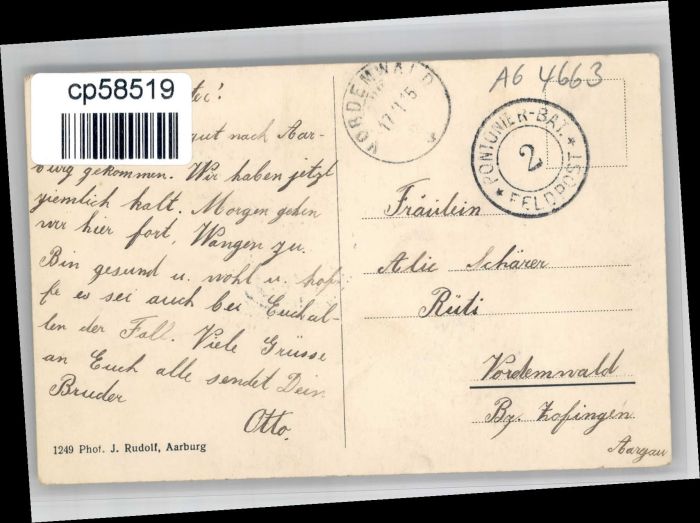 cp58519
gut nach Aar-
burg gekommen. Wir haben jetzt
ziemlich kalt. Morgen gehen
wir hier fort, Wangen zu.
Bin gesund u. wohl u. hof-
fe es sei auch bei Euch al-
len der Fall. Viele Grüsse
an Euch alle sendet Dein
Bruder
Otto.
1249 Phot. J. Rudolf, Aarburg
VORDEMWALD
17.1.15
A6 4663
PONTONIER-BAT.
2
★ FELDPOST ★
Fräulein
Alie Schärer
Rüti
Vordemwald
Bz. Zofingen
Aargau